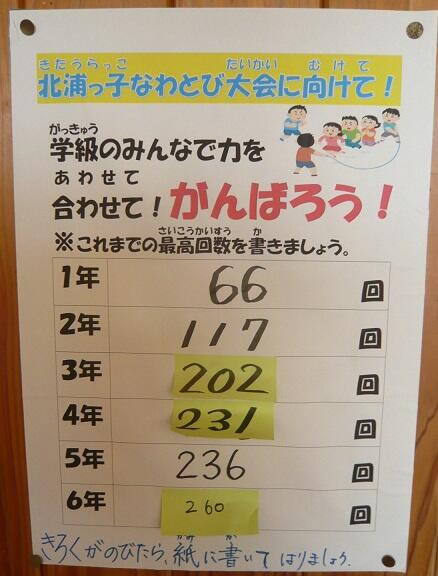 きたうらっこ たいかい むけて
北浦っ子なわとび大会に向けて！
がっきゅう
学級のみんなで力を
あわせて
合わせて！がんばろう！
さいこうかいすう か
※これまでの最高回数を書きましょう。
1年 66 回
2年 117 回
3年 202 回
4年 231 回
5年 236 回
6年 260 回
かみ か
きろくがのびたら、紙に書いてはりましょう。